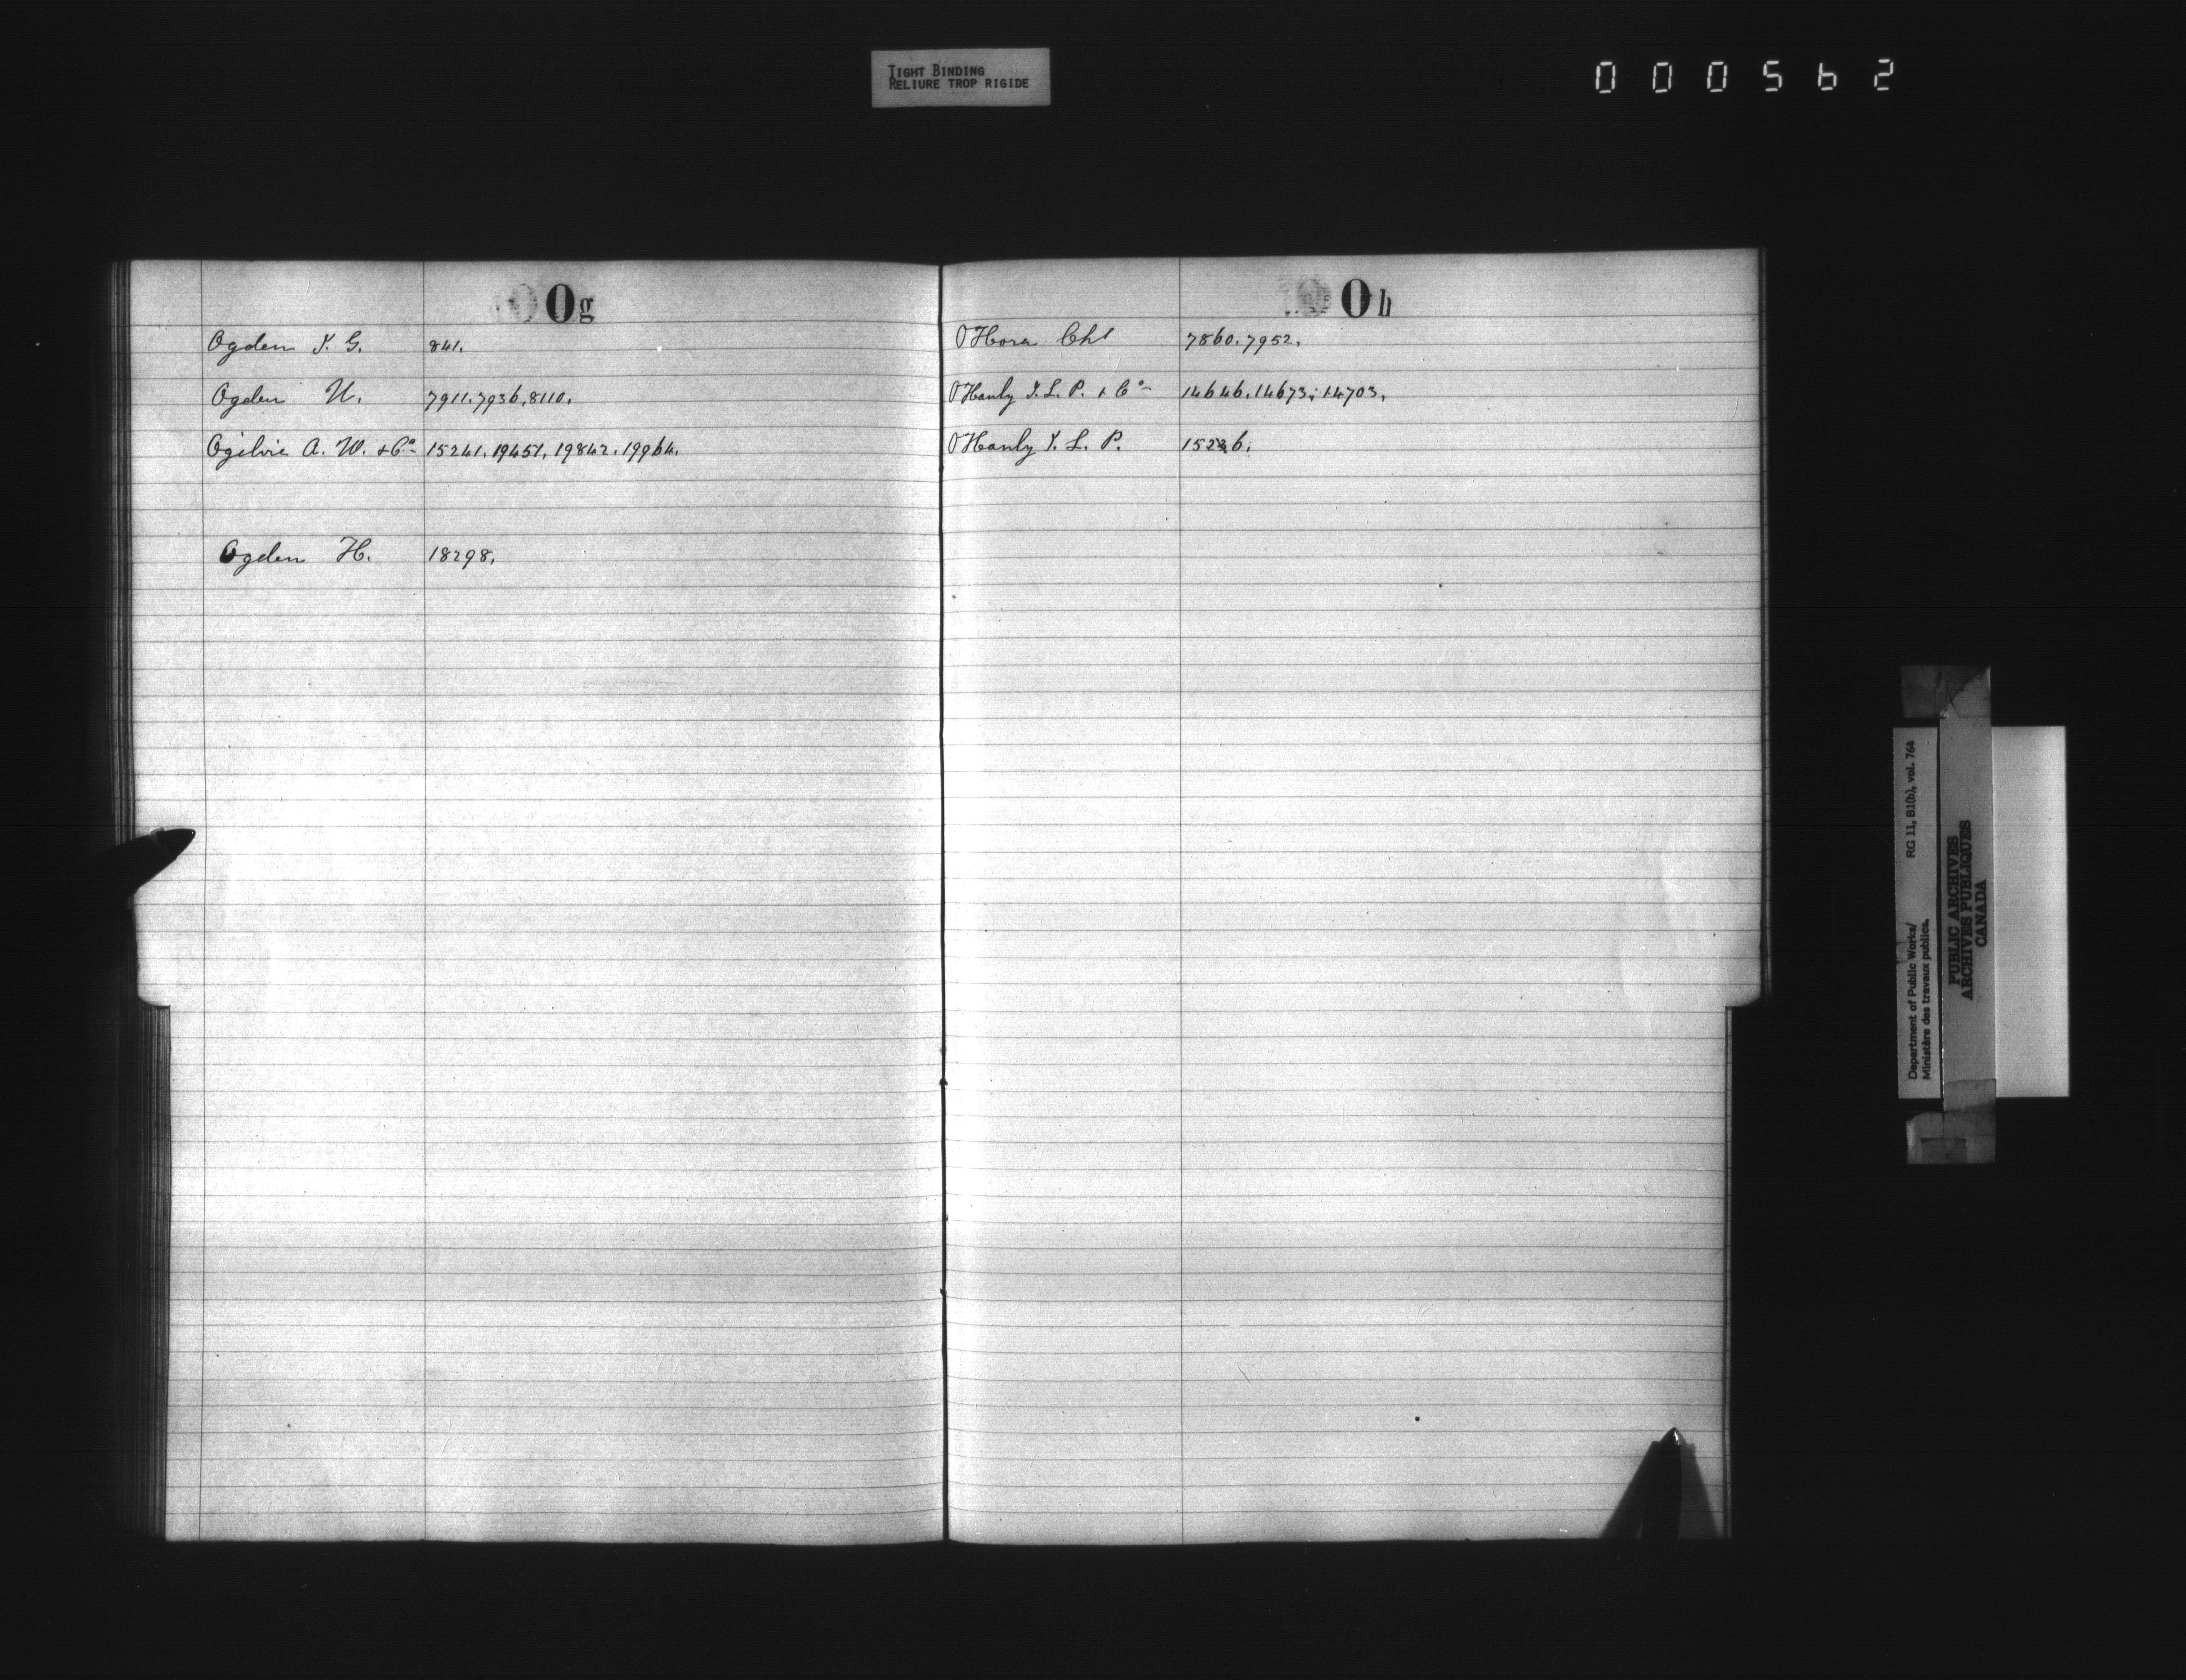 TIGHT BINDING
RELIURE TROP RIGIDE
000562
Og
Ogden J. G. 841.
Ogden U. 7911. 7936, 8110.
Ogilvie A. W. + Co 15241. 19451, 19842. 19964.
Ogden H. 18298.
Oh
O'Hora Chs 7860. 7952.
O'Hanly J. L. P. + Co 14646. 14673; 14703,
O'Hanly J. L. P.
Department of Public Works/ RG 11, B1(b), vol. 764
Ministère des travaux publics.
PUBLIC ARCHIVES
ARCHIVES PUBLIQUES
CANADA